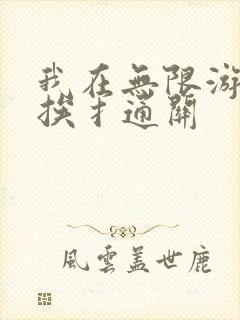 我在無限游
挨扌通關
風雲盖世鹿